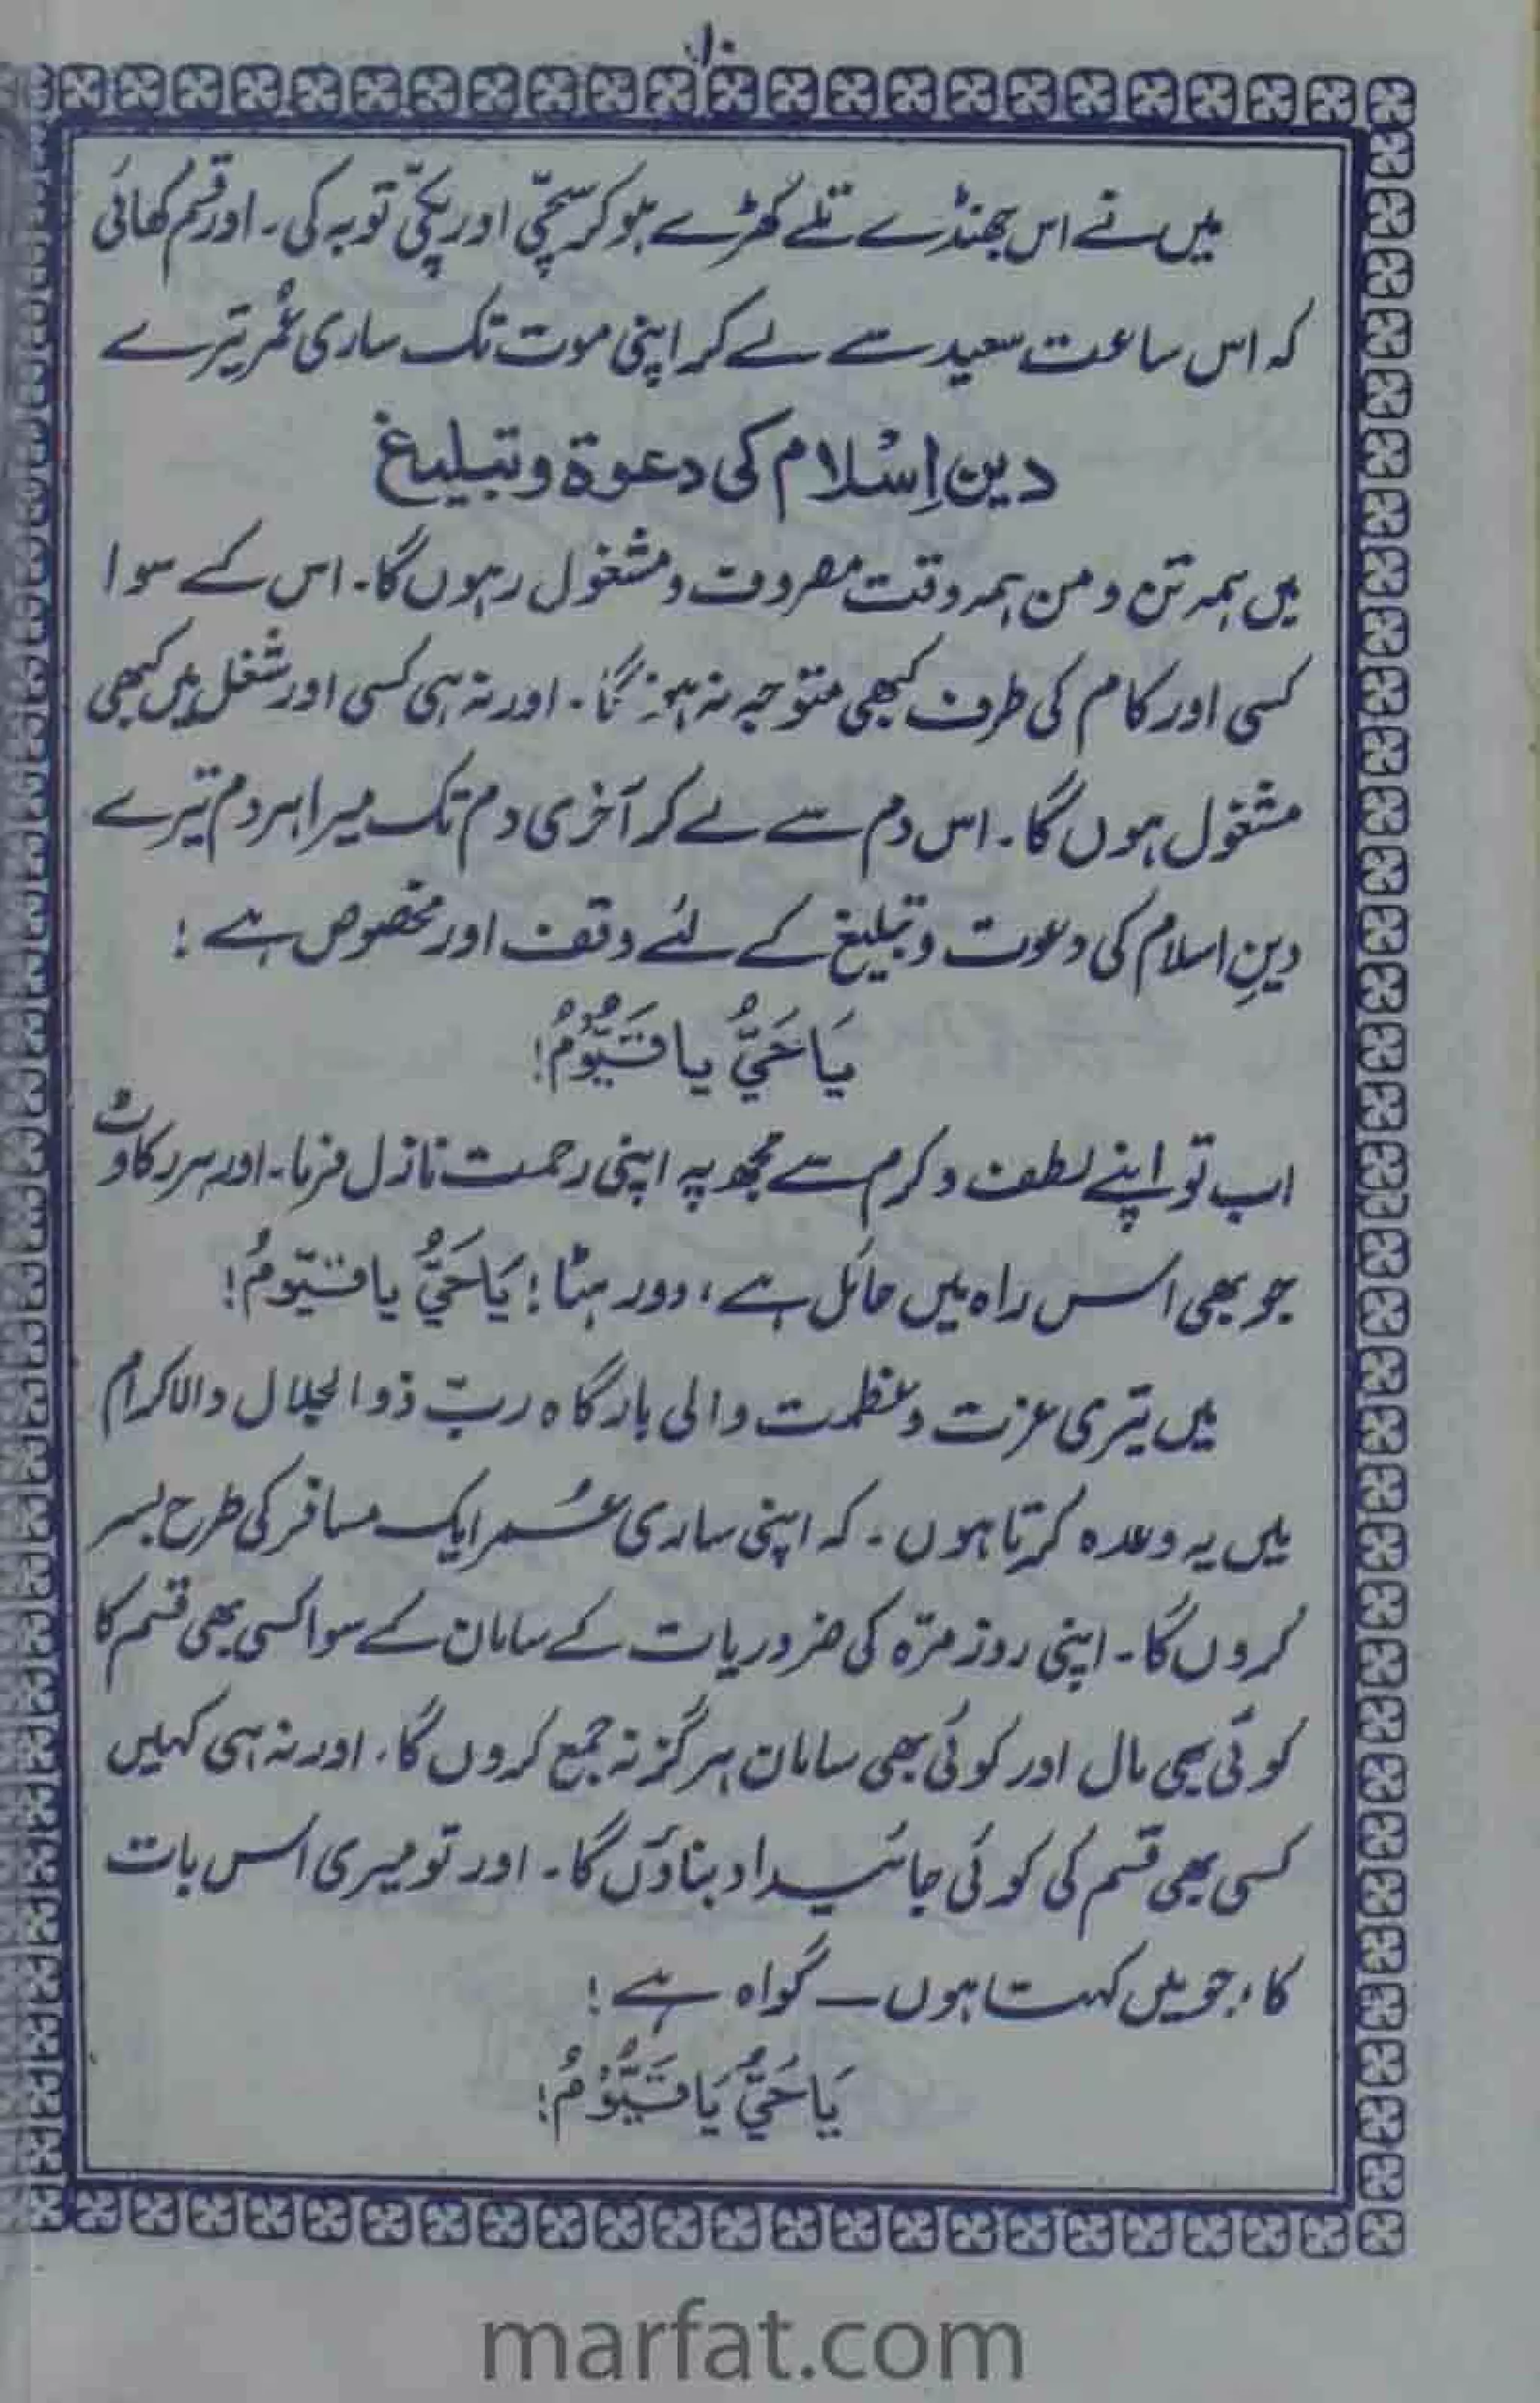 ۱۰
میں نے اس جھنڈے تلے کھڑے ہو کر سچّی اور پکّی توبہ کی۔ اور قسم کھائی
کہ اس ساعت سعید سے لے کر اپنی موت تک ساری عُمر تیرے
دین اِسْلام کی دعوۃ و تبلیغ
میں ہمہ تن و من ہمہ وقت مصروف و مشغول رہوں گا۔ اس کے سوا
کسی اور کام کی طرف کبھی متوجہ نہ ہونگا۔ اور نہ ہی کسی اور شغل میں کبھی
مشغول ہوں گا۔ اس دم سے لے کر آخری دم تک میرا ہر دم تیرے
دینِ اسلام کی دعوت و تبلیغ کے لئے وقف اور مخصوص ہے !
یَا حَیُّ یا قَیُّوْمُ!
اب تو اپنے لطف و کرم سے مجھ پہ اپنی رحمت نازل فرما۔ اور ہر رکاوٹ
جو بھی اس راہ میں حائل ہے، دور ہٹا! یَا حَیُّ یا قیّومُ!
میں تیری عزت و عظمت والی بارگاہ ربّ ذوالجلال والاکرام
میں یہ وعدہ کرتا ہوں۔ کہ اپنی ساری عُمر ایک مسافر کی طرح بسر
کروں گا۔ اپنی روز مرّہ کی ضروریات کے سامان کے سوا کسی بھی قسم کا
کوئی بھی مال اور کوئی بھی سامان ہرگز نہ جمع کروں گا۔ اور نہ ہی کہیں
کسی بھی قسم کی کوئی جائیداد بناؤں گا۔ اور تو میری اس بات
کا، جو میں کہتا ہوں — گواہ ہے !
یَا حَیُّ یَا قَیُّوْمُ!
marfat.com